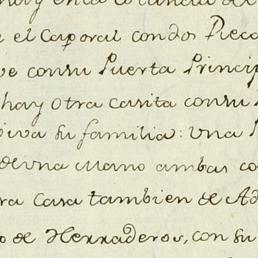 hay en la
el Caporal con dos Pieca
con su Puerta Princip
hay otra casita con su
viva su familia: una
de una mano ambas co
ra casa tambien de Ad
de Herraderos, con su